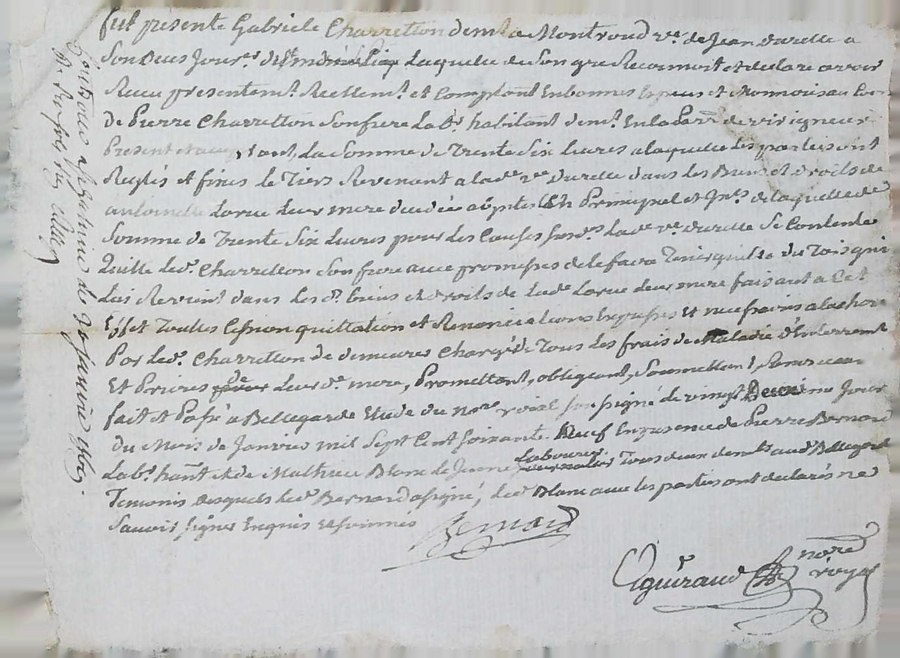 fut presente Gabriele Charretton demt a Montroud ve. de Jean durelle a
Laquelle de Son gre Reconnoit et declare avoir
Receu presentemt. Reellemt. et Comptant En bonnes Especes et Monnois au Cours
De Pierre Charretton Son frere Labr. habitant demt. En la parr. de virigneux
Present et acceptant, La Somme de Trente Six Livres a laquelle les parties ont
Reglés et finis le Tiers Revenant a lade. ve. durelle dans les Biens et droits de
antoinette Lorue leur mere decedée En Principal et Ints. de laquelle de.
Somme de Trente Six Livres pour les Causes Lade. ve. durelle Se Contente
Quitte led. Charretton Son frere avec promesses de le faire Tenir quitte du Tois qui
Lui Revient dans les d. biens et droits de lade. Lorue leur mere faisant a Cet
Effet Toutes Cession quittation et Renonciations Expresses Et necessaires a la charge
Par led. Charretton de demeurer Chargé de Tous les frais de Maladie d'Enterrement
Et Prieres leur de. mere, Promettant, obligeant, Soumettant, Renonceant
fait et Passé a Bellegarde Etude du nore. roial Soussigné le vingt Deuxieme Jour
Du Mois de Janvier mil Sept Cent Soixante Neuf En presence de Pierre Bernard
Labr. hant. et de Mathieu Blanc le Jeune Laboureur Tous deux demts. aud. Bellegarde
Temoins desquels led. Bernard a signé, led. Blanc avec les parties ont declarés ne
Savoir Signer Enquis et Sommes
Bernard
Aguiraud nore royal
quittance
de Janvier 1769.